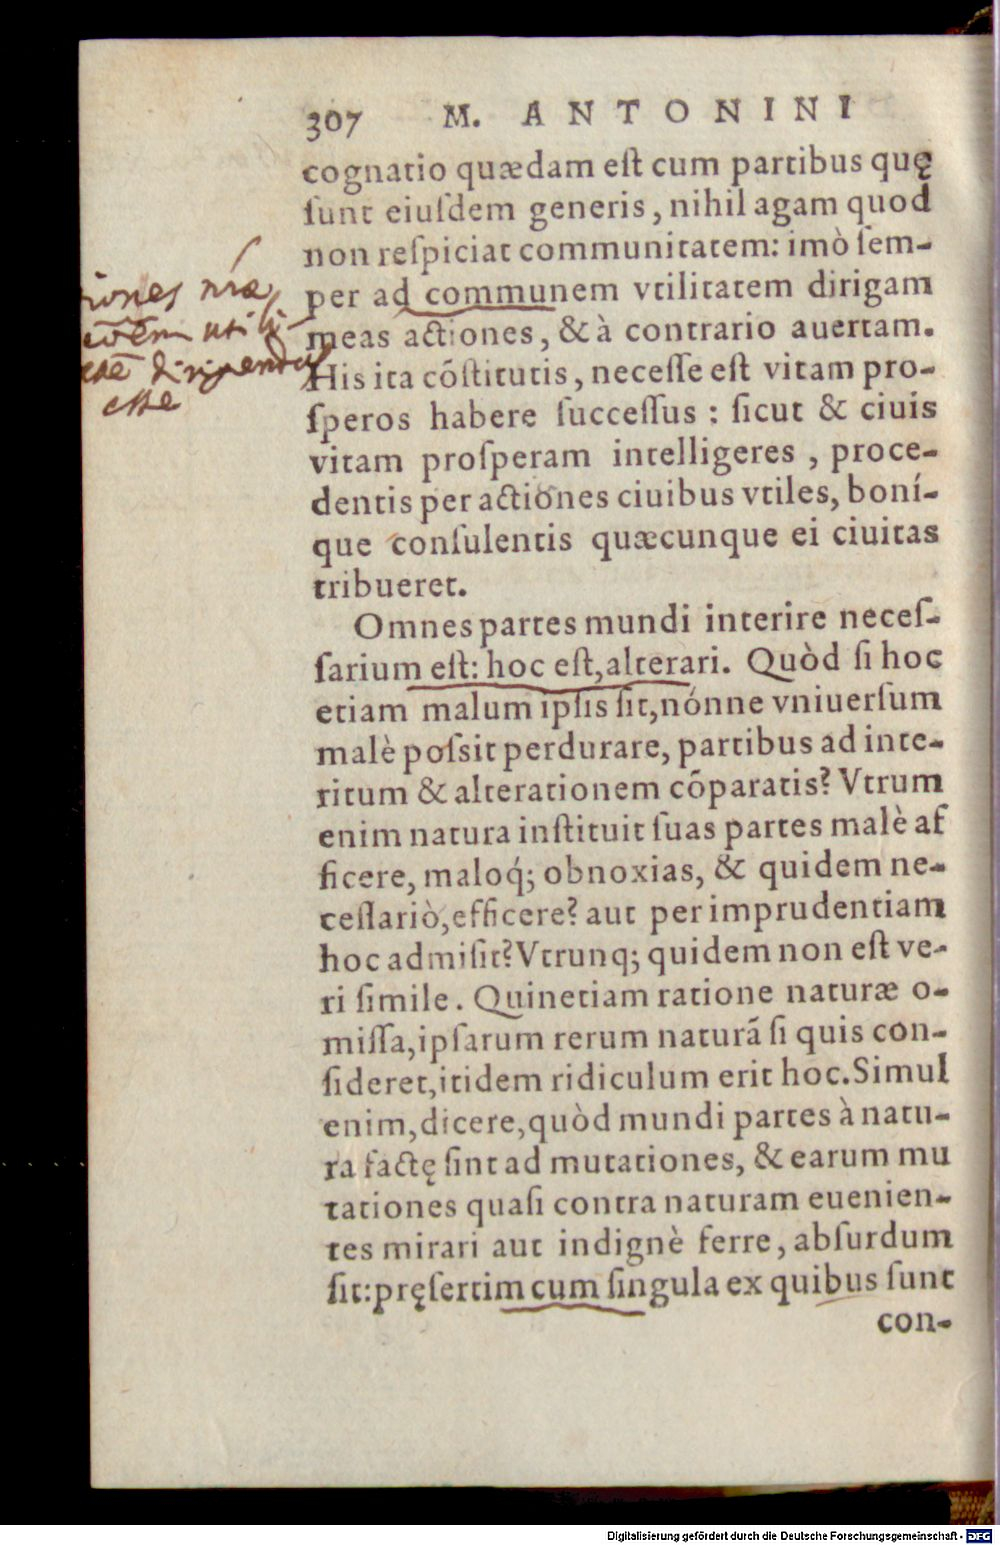 307 M. ANTONINI
cognatio quædam eſt cum partibus quę
ſunt eiuſdem generis, nihil agam quod
non reſpiciat communitatem: imò ſem-
per ad communem vtilitatem dirigam
meas actiones, & à contrario auertam.
His ita cõſtitutis, neceſſe eſt vitam pro-
ſperos habere ſucceſſus: ſicut & ciuis
vitam proſperam intelligeres, proce-
dentis per actiones ciuibus vtiles, boní-
que conſulentis quæcunque ei ciuitas
tribueret.
Omnes partes mundi interire neceſ-
ſarium eſt: hoc eſt, alterari. Quòd ſi hoc
etiam malum ipſis ſit, nónne vniuerſum
malè poſsit perdurare, partibus ad inte-
ritum & alterationem cõparatis? Vtrum
enim natura inſtituit ſuas partes malè af
ficere, maloq́; obnoxias, & quidem ne-
ceſſariò, efficere? aut per imprudentiam
hoc admiſit? Vtrunq; quidem non eſt ve-
ri ſimile. Quinetiam ratione naturæ o-
miſſa, ipſarum rerum naturã ſi quis con-
ſideret, itidem ridiculum erit hoc. Simul
enim, dicere, quòd mundi partes à natu-
ra factę ſint ad mutationes, & earum mu
tationes quaſi contra naturam euenien-
tes mirari aut indignè ferre, abſurdum
ſit: pręſertim cum ſingula ex quibus ſunt
con-
iones nrae
cōēm utili
tatē dirigendas
esse
Digitalisierung gefördert durch die Deutsche Forschungsgemeinschaft - DFG